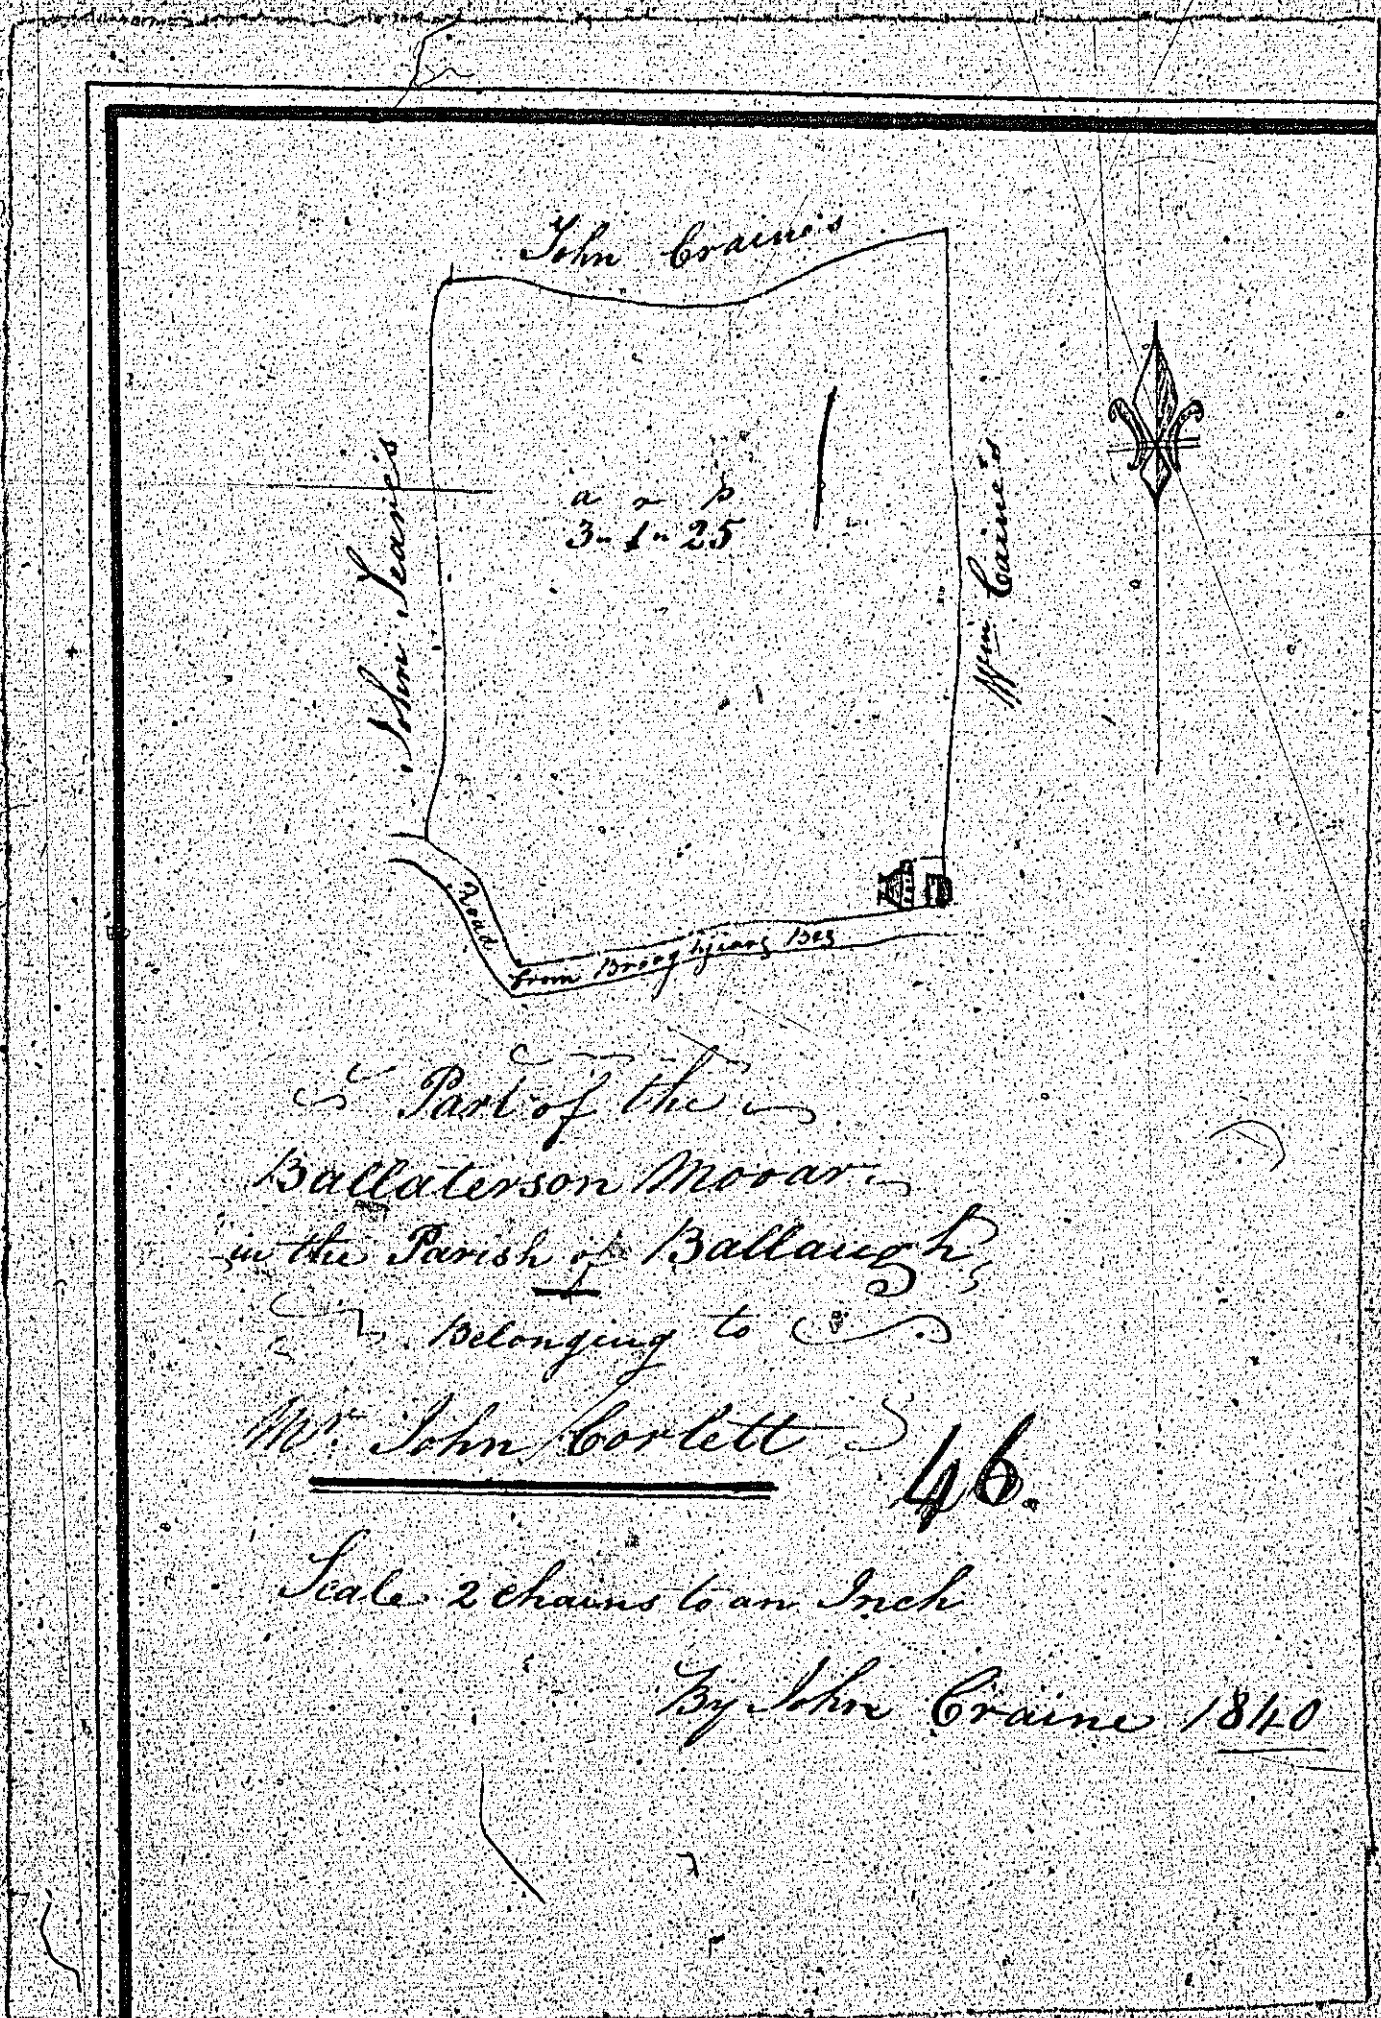 John Craine's
John Seare's
a r p
3 " 1 " 25
Wm. Caine's
Road
from Broogh
Beg
Part of the
Ballaterson Mooar
in the Parish of Ballaugh
Belonging to
Mr. John Corlett
46.
Scale 2 chains to an Inch
By John Craine 1840